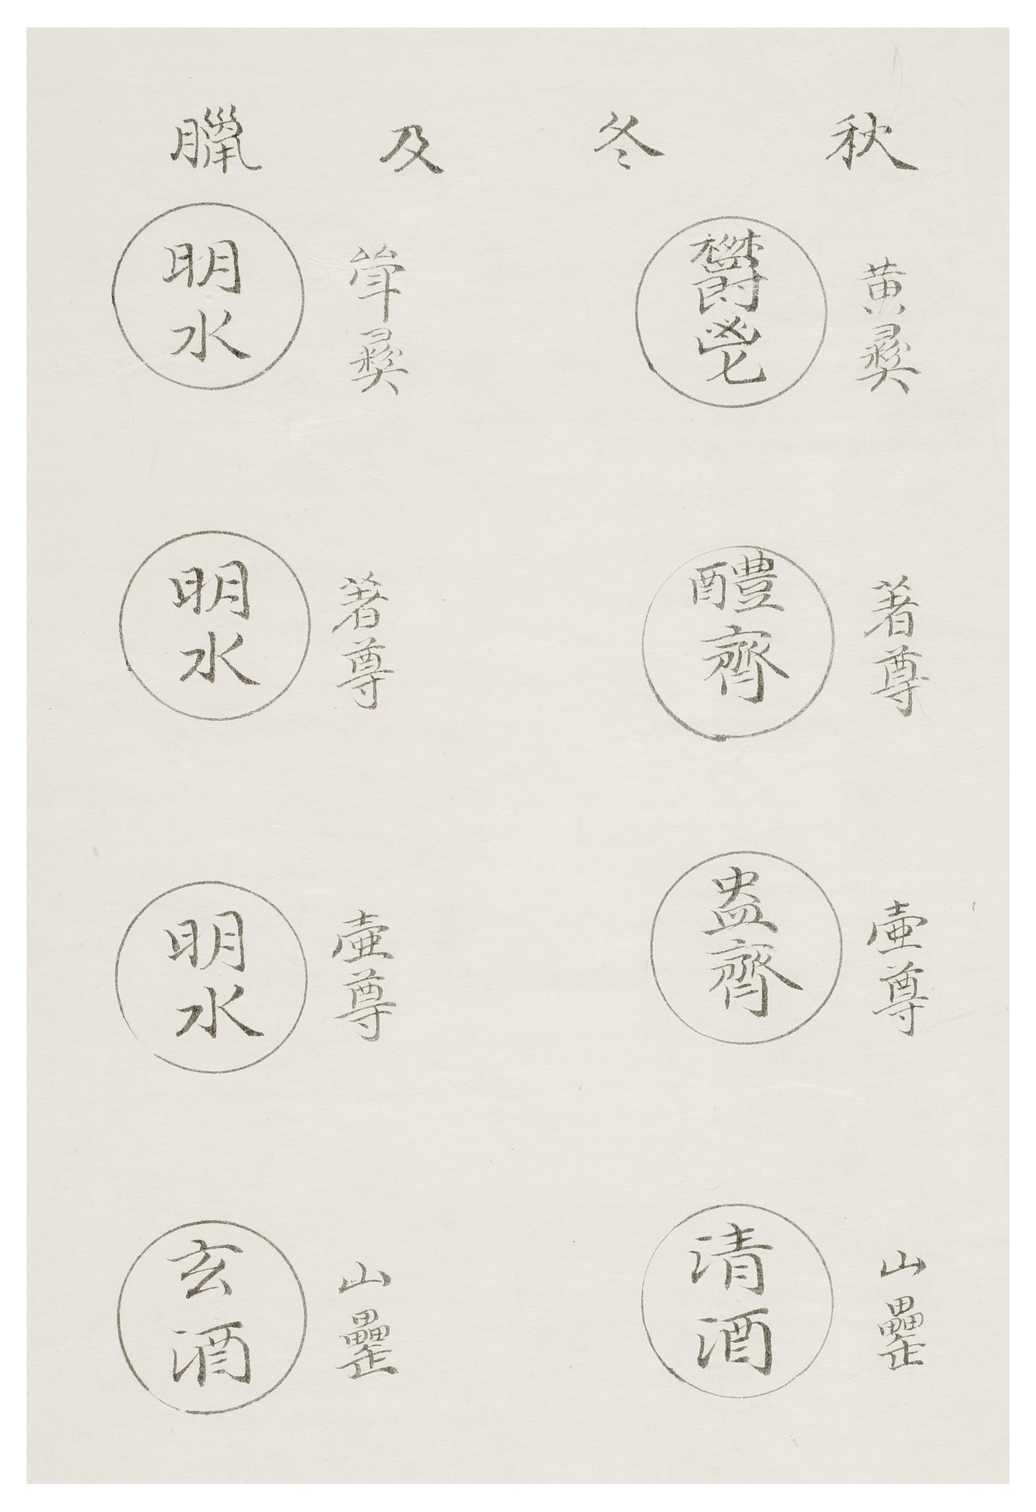 秋冬及臘
黄彛
鬱鬯
斝彛
明水
著尊
醴齊
著尊
明水
壷尊
盎齊
壷尊
明水
山罍
清酒
山罍
玄酒